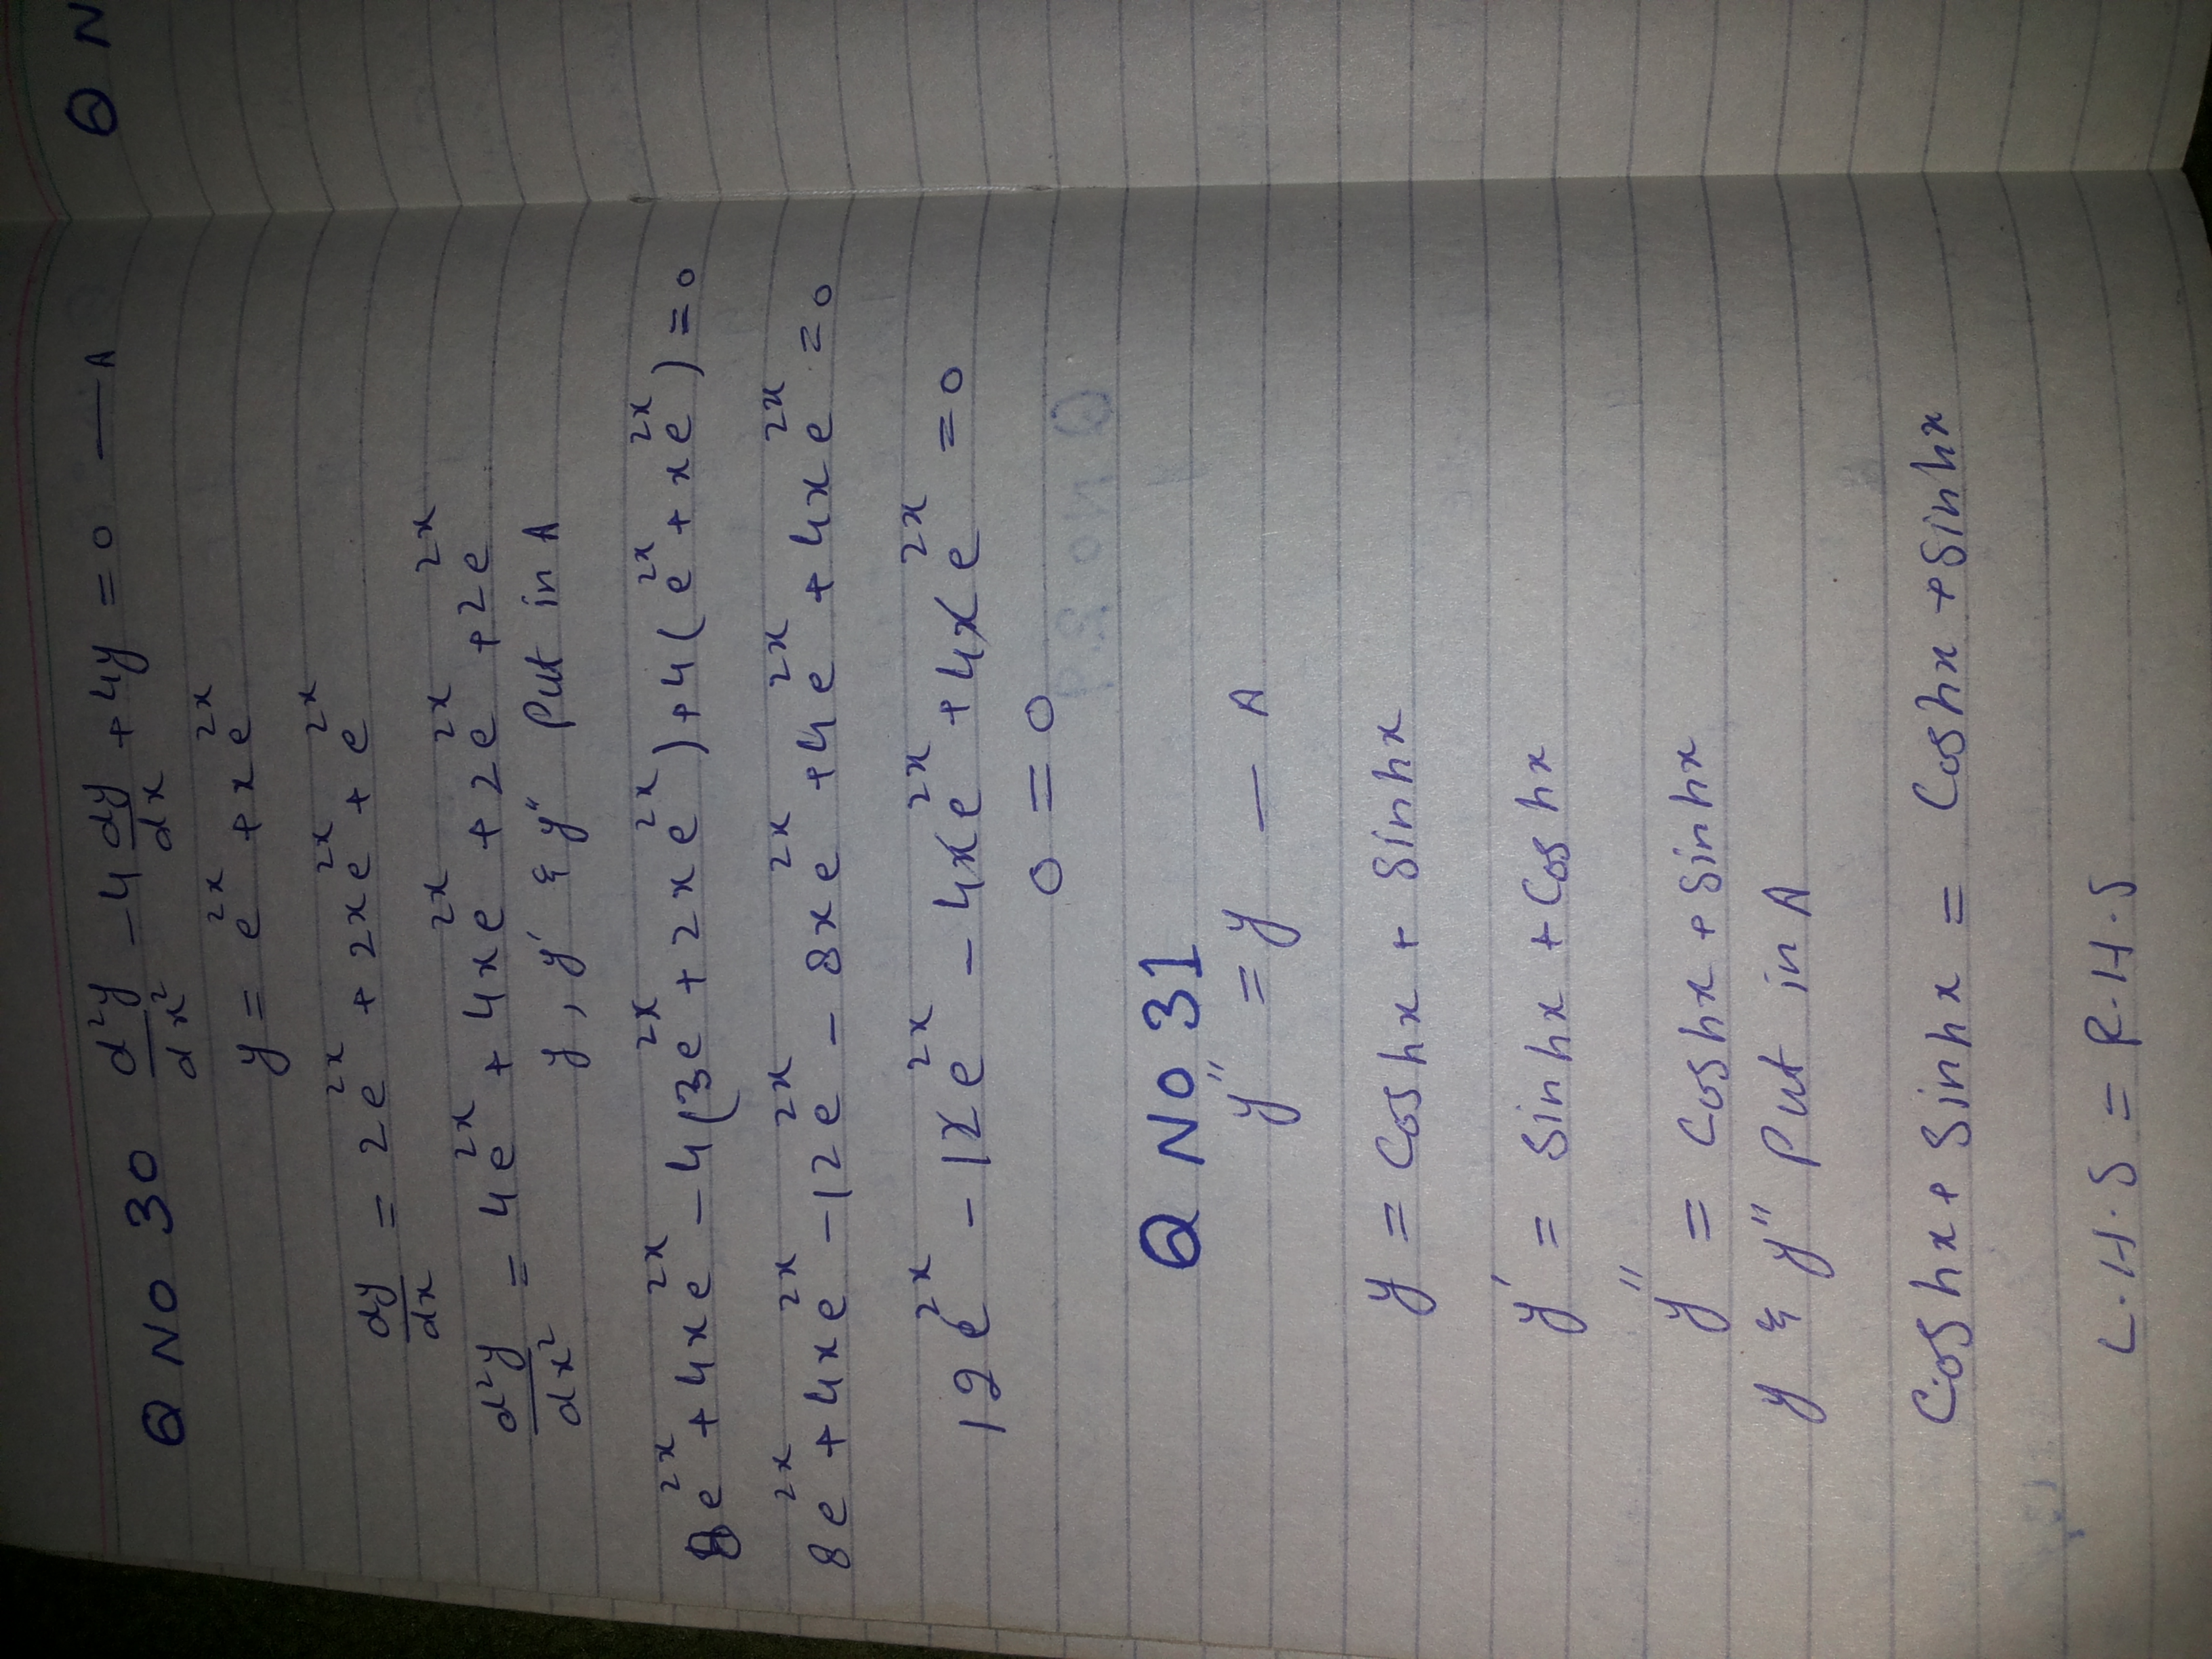 Q NO 30 d²y/dx² - 4 dy/dx + 4y = 0 — A
y = e^2x + xe^2x
dy/dx = 2e^2x + 2xe^2x + e^2x
d²y/dx² = 4e^2x + 4xe^2x + 2e^2x + 2e^2x
y, y' & y'' Put in A
8e^2x + 4xe^2x - 4(3e^2x + 2xe^2x) + 4(e^2x + xe^2x) = 0
8e^2x + 4xe^2x - 12e^2x - 8xe^2x + 4e^2x + 4xe^2x = 0
12e^2x - 12e^2x - 4xe^2x + 4xe^2x = 0
0 = 0
Q NO 31
y'' = y — A
y = Coshx + Sinhx
y' = Sinhx + Coshx
y'' = Coshx + Sinhx
y & y'' Put in A
Coshx + Sinhx = Coshx + Sinhx
L.H.S = R.H.S
Q N